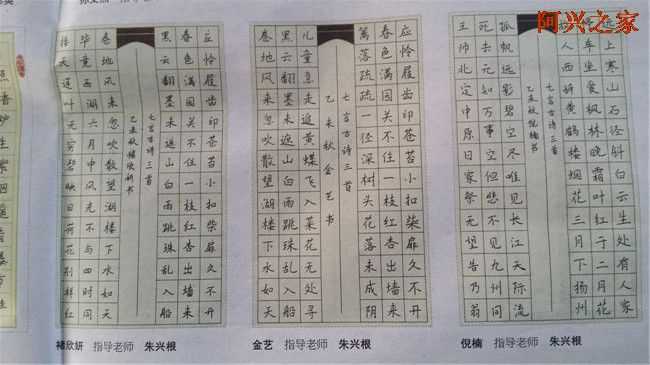 阿兴之家
应怜屐齿印苍苔小扣柴扉久不开
春色满园关不住一枝红杏出墙来
黑云翻墨未遮山白雨跳珠乱入船
七言古诗三首
乙未秋褚欣妍书
卷地风来忽吹散望湖楼下水如天
毕竟西湖六月中风光不与四时同
接天莲叶无穷碧映日荷花别样红
褚欣妍 指导老师 朱兴根
应怜屐齿印苍苔小扣柴扉久不开
春色满园关不住一枝红杏出墙来
篱落疏疏一径深树头花落未成阴
七言古诗三首
乙未秋金艺书
儿童急走追黄蝶飞入菜花无处寻
黑云翻墨未遮山白雨跳珠乱入船
卷地风来忽吹散望湖楼下水如天
金艺 指导老师 朱兴根
远上寒山石径斜白云生处有人家
停车坐爱枫林晚霜叶红于二月花
故人西辞黄鹤楼烟花三月下扬州
七言古诗三首
乙未秋倪楠书
孤帆远影碧空尽唯见长江天际流
死去元知万事空但悲不见九州同
王师北定中原日家祭无忘告乃翁
倪楠 指导老师 朱兴根